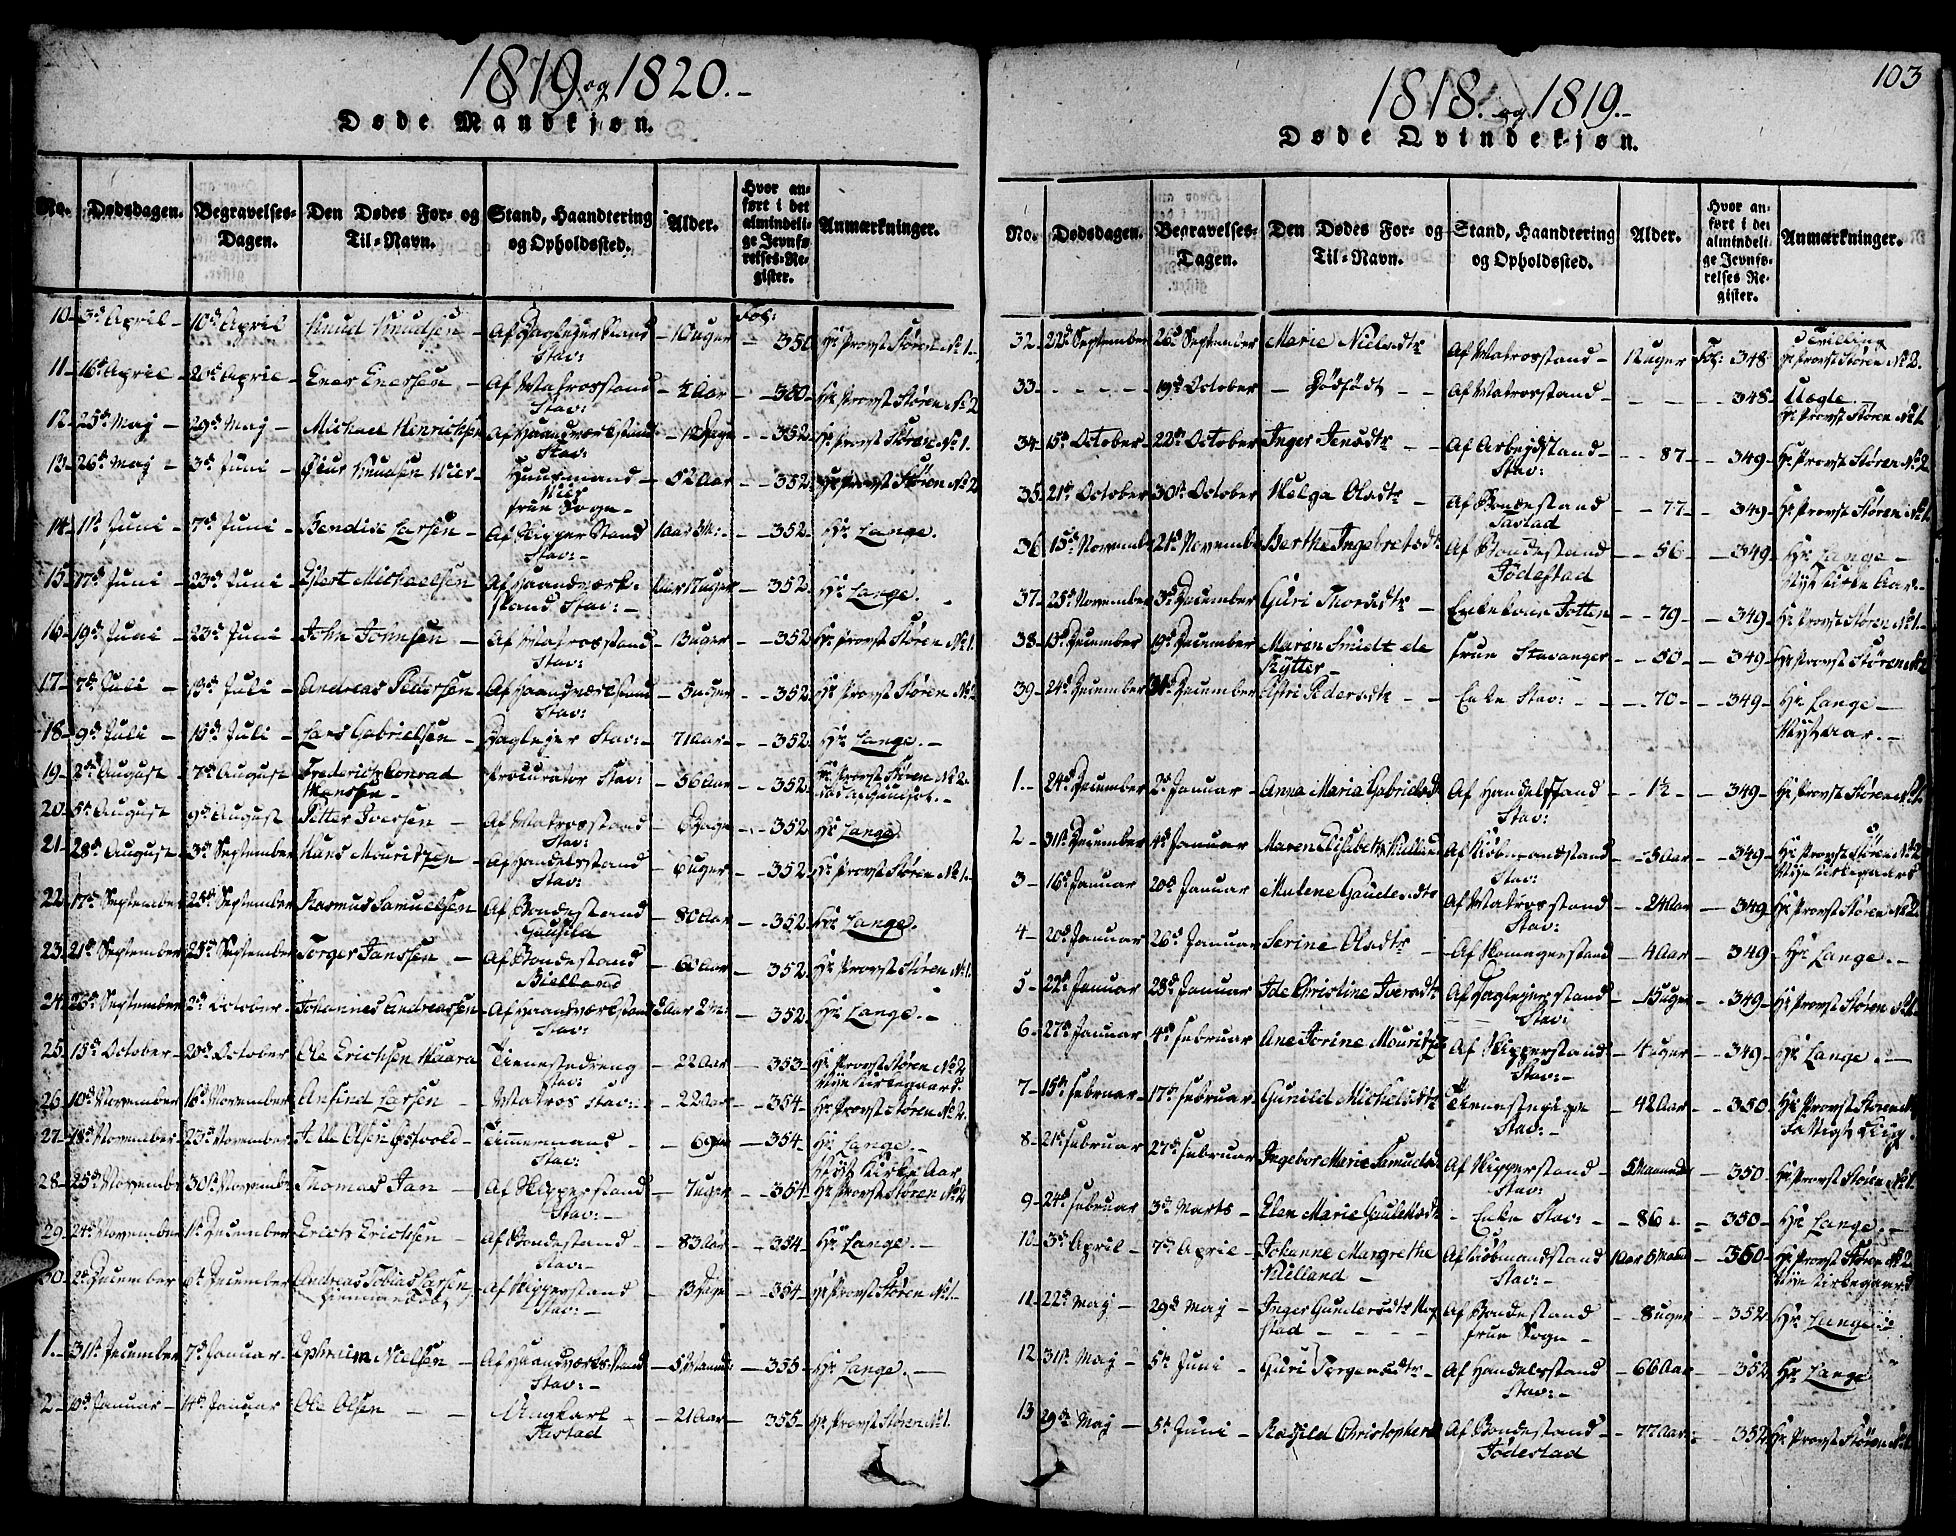 1819 og 1820.-
Døde Mandkjøn.
No. Dødsdagen. Begravelses-Dagen. Den Dødes For- og Til-Navn. Stand, Haandtering og Opholdssted. Alder. Hvor anført i det almindelige Jevnførelses-Register. Anmærkninger.
10 - 3de April - 10de April Knud Knudsen - Af Daglejer Stand Stav: - 10 uger - Fol: 350 Hr Provst Støren No 1.
11 - 16de April - 20de April - Ener Enersen - Af Matrosstand Stav: - 2 Aar - 350 - Hr Provst Støren No 2
12 - 25de Maj - 29de Maj - Michael Henrichsen Af Haandværkstand Stav: - 12 Dage - 352. Hr Provst Støren No 1.
13 - 26de Maj - 3de Juni - Knudsen Huusmand frue Sogn - 52 Aar - 352. Hr Provst Støren No 2
14 - 1te Juni - 7de Juni - Bendix Larsen - Af Skipper Stand Stav: - 1 Aar 3 M: - 352. Hr Lange.
15 - 17de Juni - 23de Juni - Michaelsen Af Haandværkstand Stav: - 352. Hr Lange.
16 - 19de Juni - 23de Juni - John Johnsen - Af Matrosstand Stav: - 13 uger - 352. Hr Provst Støren No 1.
17 - 7de Juli - 13de Juli - Andreas Pettersen - Af Haandværkstand Stav: - 5 uger - 352. Hr Provst Støren No 2
18 - 9de Juli - 15de Juli - Lars Gabrielsen - Daglejer Stav: - 71 Aar - 352. Hr Lange.-
19 - 2de August - 7de August Frederich Conrad Hansen - Procurator Stav: - 56 Aar - 352. Hr Provst Støren No 2.
20 - 5te August - 9de August - Petter Iversen - Af Matrosstand Stav: - 6 Dage - 352 Hr Lange
21 - 28de August - 3de September Hans Mouritzen - Af Handelsstand Stav: - 6 uger - 352. Hr Provst Støren No 1.
22 - 17de September 25de September Rasmus Samuelsen Af Bondestand Gausela - 80 Aar - 352. Hr Lange.
23 - 21de September 25de September Torger Janssen - Af Bondestand Bielland - 60 Aar - 352. Hr Provst Støren No 1.
24 - 26de September 2de October - Johannes Andreassen - Af Haandværkstand Stav: 2 Aar 2 M: - 352. Hr Lange.-
25 - 15de October - 20de October Ole Erichsen Haara Tienestedreng Stav: - 22 Aar - 353 - Hr Provst Støren No 2 Nye Kirkegaard.
26 - 10de November 16de November Ansind Larsen - Matros Stav: - 22 Aar - 354 - Hr Provst Støren No 2.
27 - 18de November - 23de November - Olsen Østvold - Timermand - Stav: - 354 - Hr Lange.-
28 - 25de November 30te November Thomas Jan - Af Skipperstand Stav: - 7 uger - 354 - Hr Provst Støren No 2
29 - 24de November 1te December Erich Erichsen - Af Bondestand - Stav: - 83 Aar - 354 - Hr Lange.-
30 - 2de December 6te December Andreas Tobias Larsen Af Skipperstand Stav: - 13 Dage - 354 - Hr Provst Støren No 1.-
1. - 31te December 7de Januar - Ephraim Nielsen - Af Haandværksstand Stav: - 5 Maand: - 355 - Hr Lange.-
2 - Januar - 14de Januar Ole Olsen - - Ungkarl - - 21 Aar - 355 - Hr Provst Støren No 1.
103
1818. og 1819.-
Døde Qvindekjøn.
No. Dødsdagen. Begravelses-Dagen. Den Dødes For- og Til-Navn. Stand, Haandtering og Opholdssted. Alder. Hvor anført i det almindelige Jevnførelses Register. Anmærkninger.
32 - 22de September 26de September Marie Nielsdtr Af Matrosstand - 12 uger Fol: 348 Tvilling Hr Provst Støren No 2.
33 - - - - - 19de October - Dødfødt - - Af Matrosstand - - - 348 - Uægte - Hr Provst Støren No 1
34 - 15de October - 22de October - Inger Jensdtr - - Af Arbeydstand - Stav: - 87 - - 349 - Hr Provst Støren No 2
35 - 21de October 30te October - Helga Olsdtr - Af Bondestand - 77 - - 349 - Hr Provst Støren No 1.
36 - 15de Novemb: 21de November Berthe Ingebretsdtr Af Bondestand Jødestad - 56 - - 349 - Hr Lange -
37 - 25de November 3de December Guri Thorsdtr - Enkekone Jotten - 79 - - 349 - Hr Provst Støren No 1 -
38 - 13de December 19de December Maren Smidt de Rytter - frue Stavanger - 50 - - 349 - Hr Provst Støren No 2
39 - 24de December 31te December Astri Pedersdtr - - Enke Stav: - - 70 - - 349 - Hr Lange -
1. - 24de December 2de Januar - Anna Maria Gabrielsd: Af Handelstand Stav: - 1½ - - 349 - Hr Provst Støren No 2
2 - 31te December 4de Januar Maren Elisabeth Kielland Af Kiøbmandstand Stav: - 5 Aar - 349 - Hr Provst Støren No 2 Nye Kirkegaard
3 - 16de Januar 20de Januar Malene Gaudesdtr Af Matrosstand Stav: - 24 Aar - 349 Hr Provst Støren No 2.
4 - 20de Januar 26de Januar Serine Olsdtr - Af stand - 4 Aar - 349 - Hr Lange.-
5 - 22de Januar 28de Januar Ide Christine Iversdtr Af Daglejerstand - Stav: - 15 uger - 349 - Hr Provst Støren No 1.
6 - 27de Januar 4de Februar Ane Torine Mouritz: Af Skipperstand Stav: - 4 uger - 349 - Hr Lange.-
7 - 15de Februar - 17de Februar - Gunild Michelsdtr Tienestepige Stav: - 42 Aar - 350 - Hr Provst Støren
8 - 21de Februar 27de Februar Ingebor Marie Samuelsd: Af Skipperstand - Stav: 5 Maaneder - 350 - Hr Provst Støren No 1.
9 - 24de Februar 3de Marts - Elen Marie Gaulesdtr - Enke Stav: - 86 - 350 - Hr Lange.-
10 - 3de April - 7de April - Johanne Margrethe Kielland - Af Kiøbmandstand Stav: - 1 Aar 6 Maand - 350 - Hr Provst Støren No 2 Nye Kirkegaard
11 - 22de Maj - 29de Maj - Inger Gundersdtr stad - Af Bondestand frue Sogn - - 8 uger - 352 - Hr Lange
12 - 31te Maj - 5te Juni - Guri Torgersdtr - Af Handelsstand Stav: - 66 Aar - 352 Hr Lange
13 29de Maj - 5te Juni - Ragild Christophers Af Bondestand Jødestad - 77 Aar - 352 Hr Provst Støren No 1